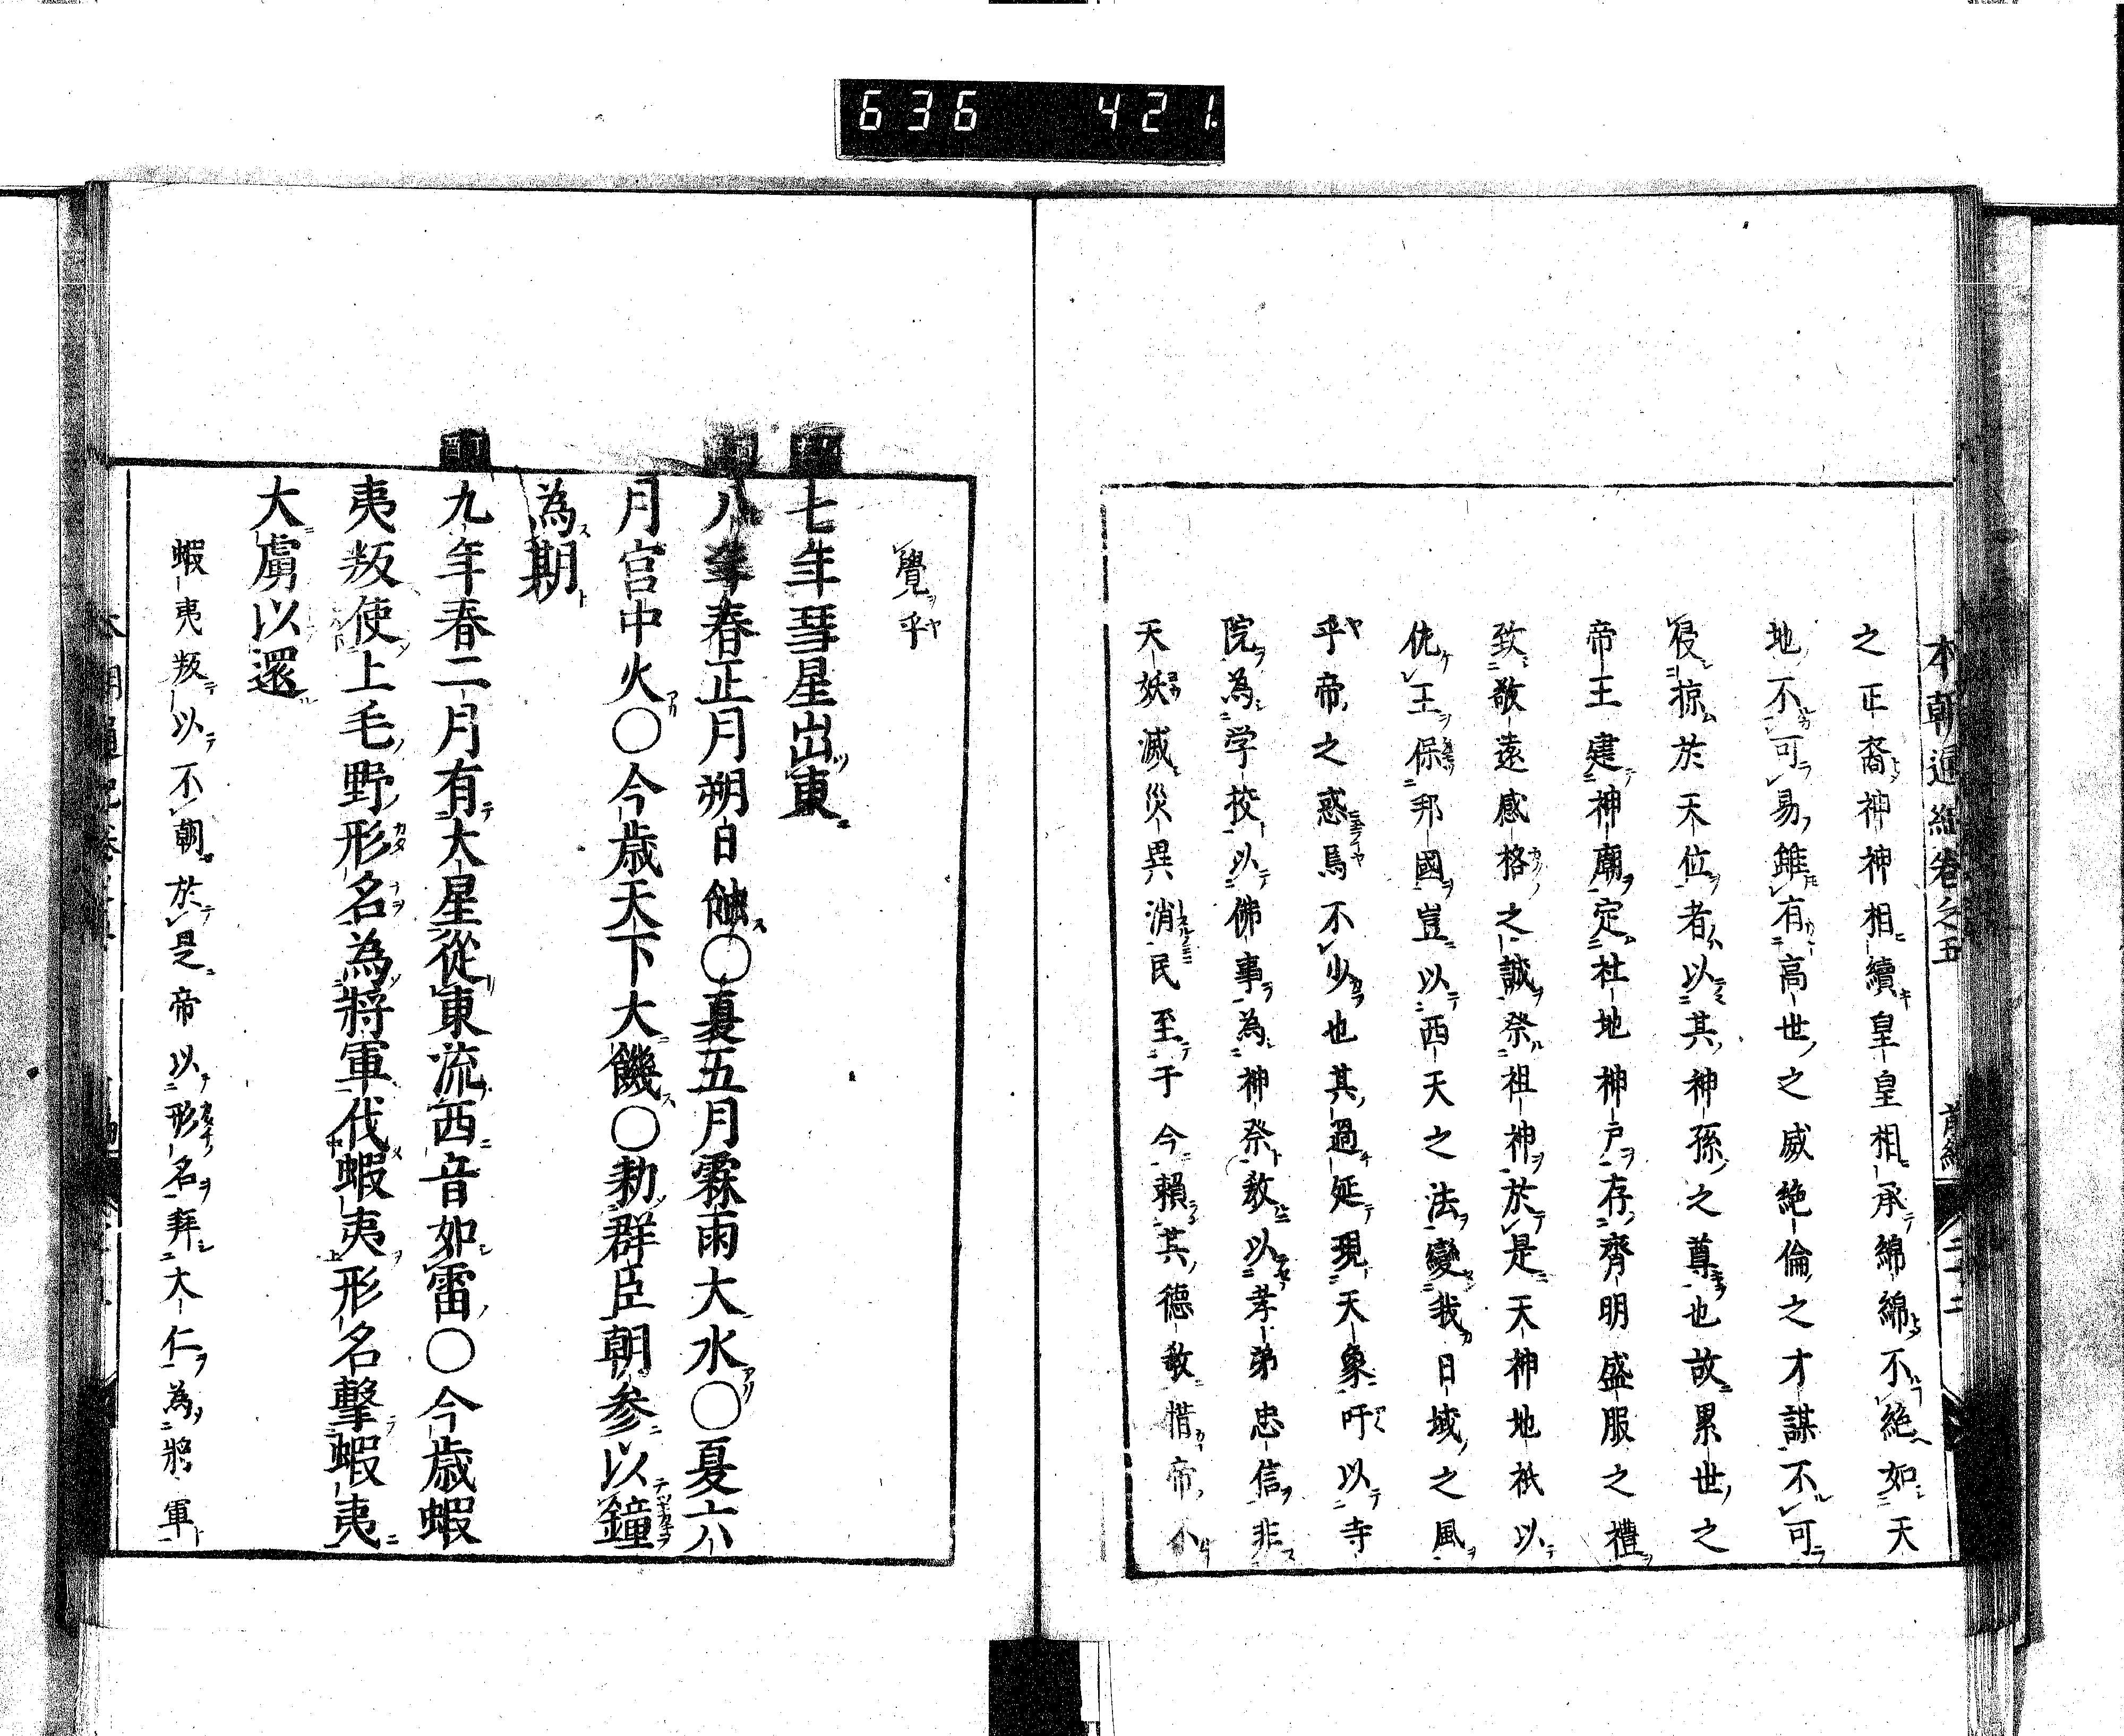 636 421
本朝通紀卷之五 前編 二十二
之正裔神神相續皇皇相承綿綿不絶如天
地不可易雖有高世之威絶倫之才謀不可
侵掠於天位者以其神孫之尊也故累世之
帝王建神廟定社地神戸存齊明盛服之禮
致敬遠感格之誠祭祖神於是天神地祇以
優王保邦國豈以西天之法變我日域之風
乎帝之惑焉不少也其過延現天象吁以寺
院為学校以佛事為神祭敎以孝弟忠信非
天妖滅災異消民至于今賴其德敎惜帝不
覺乎
七年彗星出東
八年春正月朔日蝕○夏五月霖雨大水○夏六
月宮中火○今歳天下大饑○勅群臣朝参以鐘
為期
丁酉
九年春二月有大星從東流西音如雷○今歳蝦
夷叛使上毛野形名為將軍伐蝦夷形名擊蝦夷
大虜以還
蝦夷叛以不朝於是帝以形名拜大仁為將軍